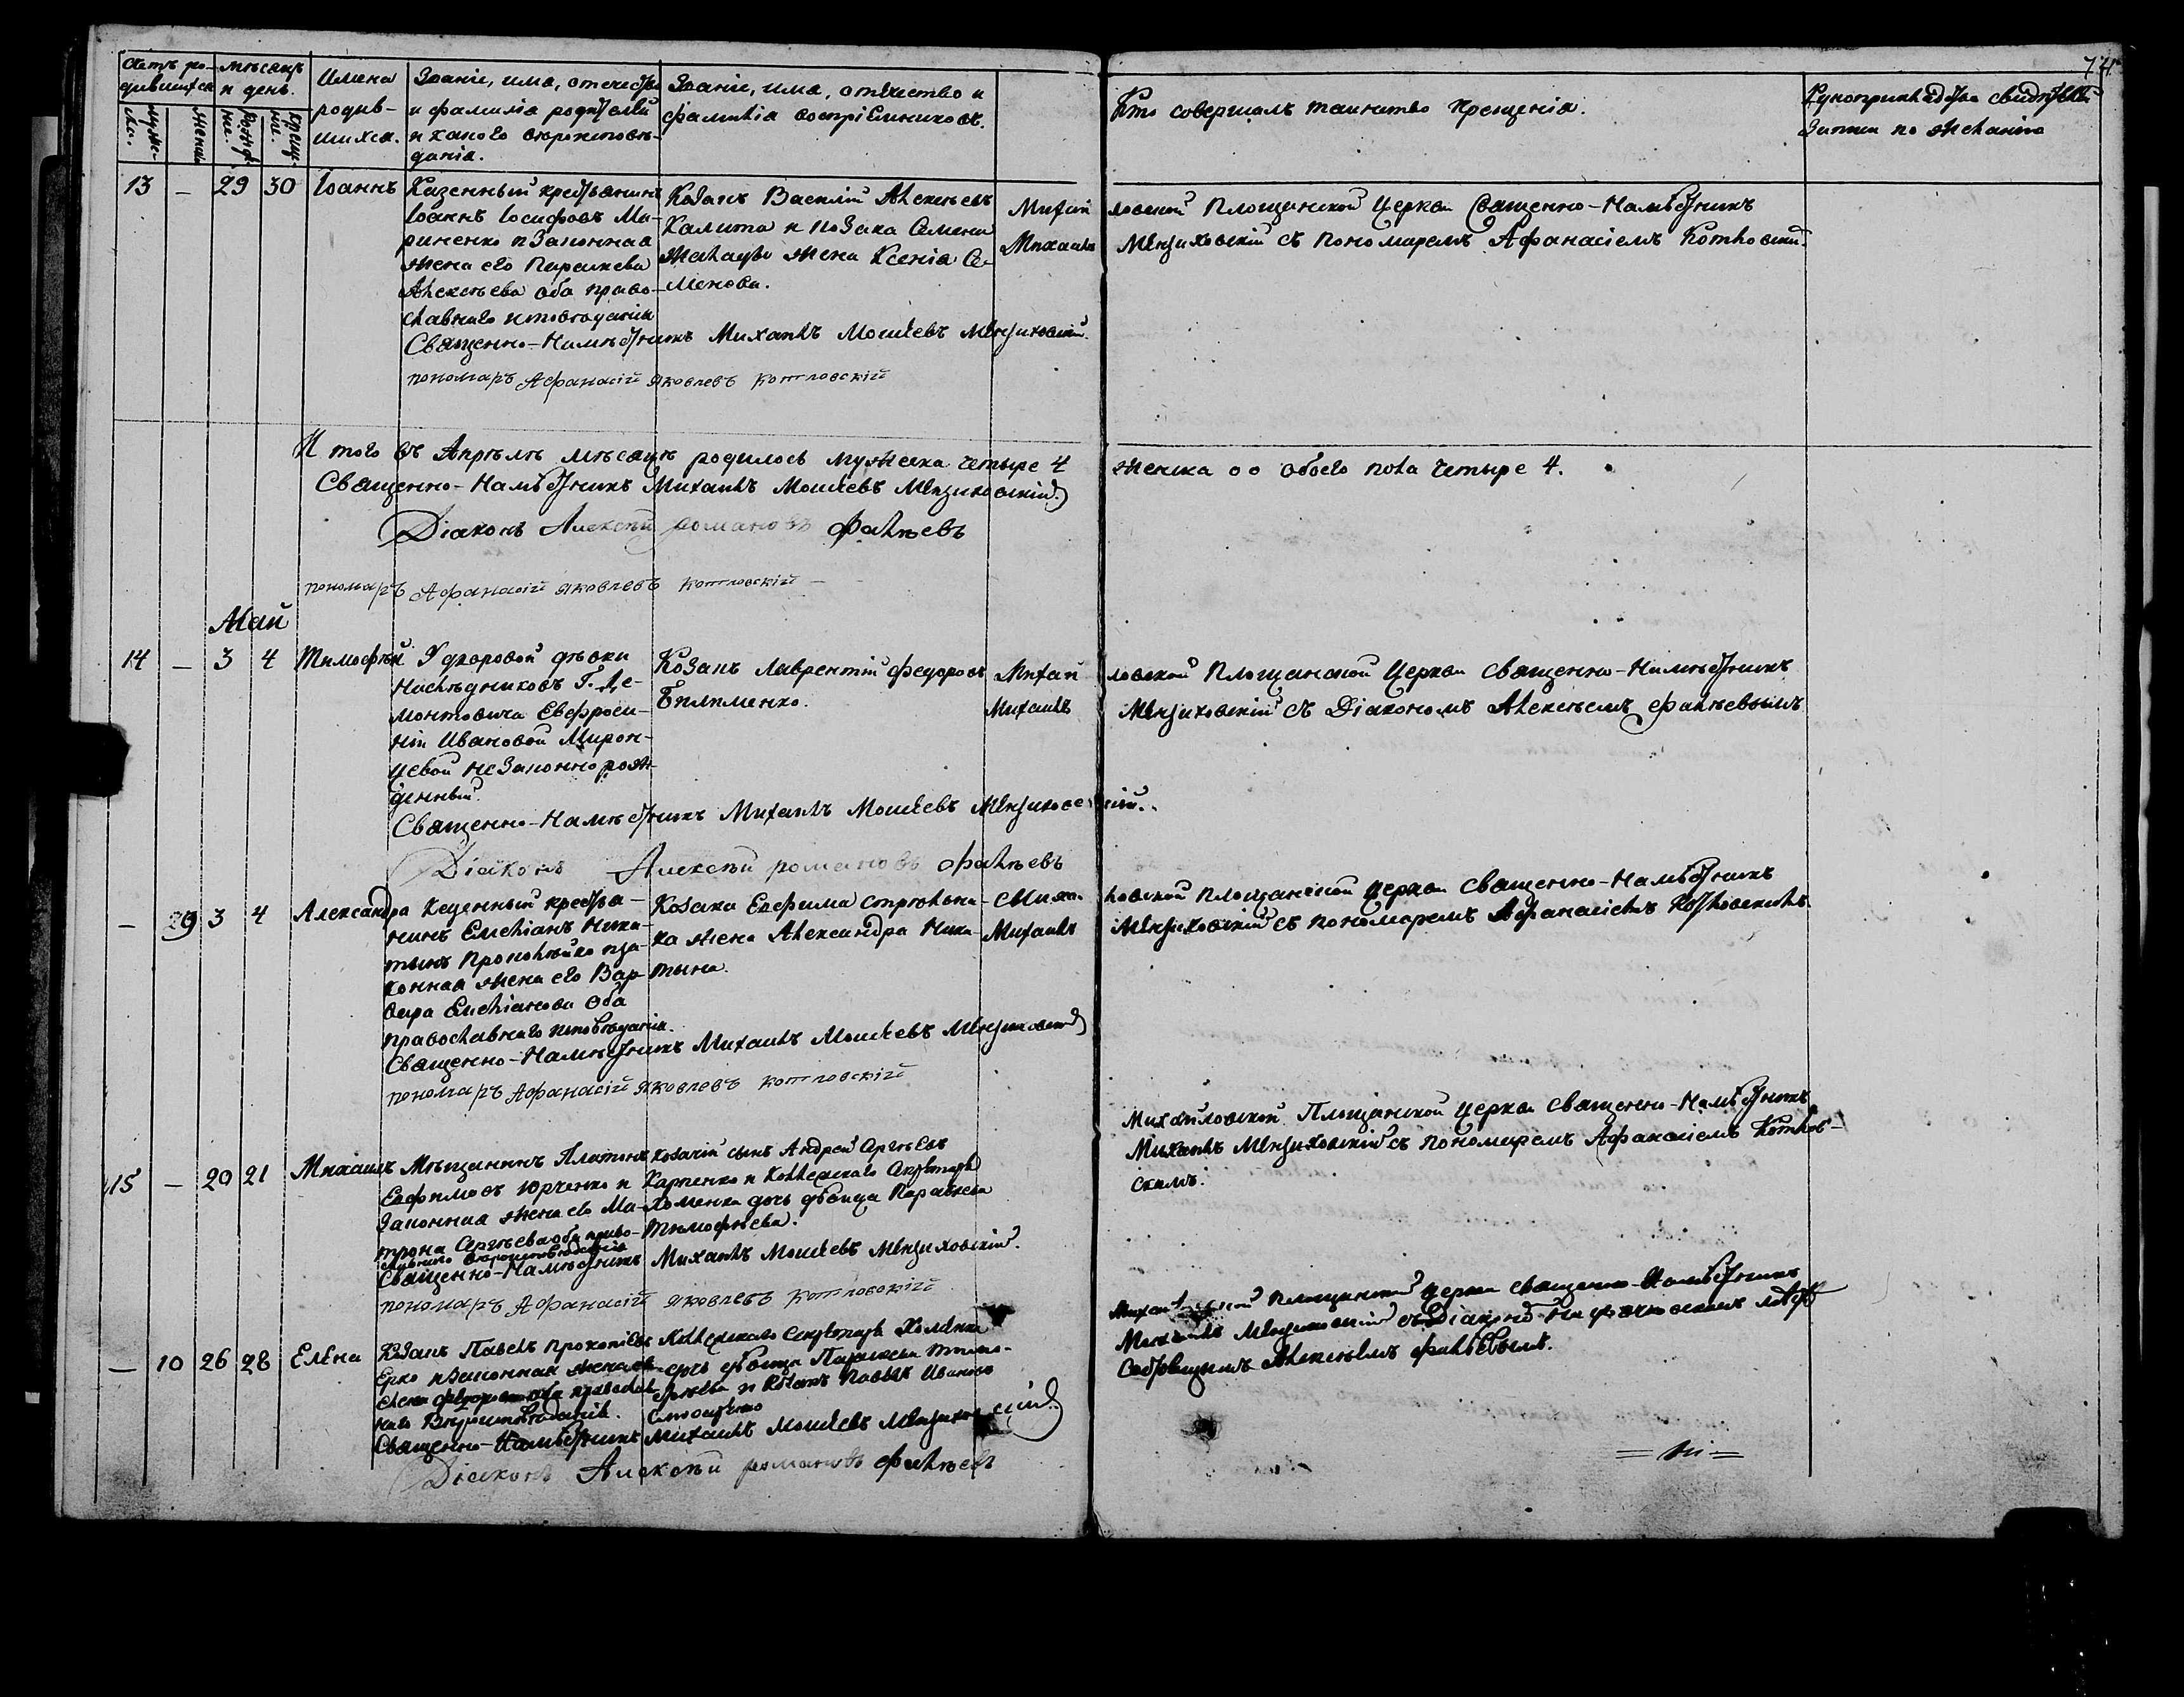 74
Счетъ ро-
дившихся
мѣсяцъ
и день.
Имена
родив-
шихся.
Званіе, има, отечество
и фамиліа родителей
и какого вѣроисповѣ-
данія.
Званіе, има, отчество и
фамиліа воспріемниковъ.
Кто совершалъ таинство крещенія.
Рукоприкладство свидѣтелей
записи по желанію
13 — 29 30 Іоаннъ
Казенный крестьянинъ
Іоаннъ Іосифовъ Ма-
риненко и законная
жена его Параскева
Алексѣева оба право-
славнаго исповѣданія
Козакъ Василій Алексѣевъ
Калита и козака Семена
жена Ксенія Се-
менова.
Михай ловской Площанской Церкви Священно-Намѣстникъ
Михаилъ Мензиховскій съ пономаремъ Афанасіемъ Котловски.
Священно-Намѣстникъ Михаилъ Моисѣевъ Мензиховскій.
пономаръ Афанасій Яковлевъ Котловскій
И того въ Апрѣлѣ мѣсяцѣ родилось мужеска четыре 4 женска оо обоего пола четыре 4.
Священно-Намѣстникъ Михаилъ Моисѣевъ Мензиховскій
Діаконъ Алексѣй романовъ Фалѣевъ
пономаръ Афанасій Яковлевъ Котловскій
Май
14 — 3 4 Тимофѣй
У дворовой дѣвки
Наслѣдниковъ Г. Ле-
монтовича Евфроси-
ніи Ивановой Мирон-
цевой незаконно рож-
денный.
Козакъ Лаврентій Федоровъ
Билименко.
Михай ловской Площанской Церкви Священно-Намѣстникъ
Михаилъ Мензиховскій съ Діакономъ Алексѣемъ Фалѣевымъ
Священно-Намѣстникъ Михаилъ Моисѣевъ Мензиховскій.
Діаконъ Алексѣй романовъ Фалѣевъ
— 9 3 4 Александра
Казенный крестья-
нинъ Емеліанъ Ники-
тинъ и за-
конная жена его Вар-
вара Емеліанова оба
православнаго исповѣданія.
Козака Евфима Стрюльни-
ка жена Александра Ники-
тина.
Михай ловской Площанской Церкви Священно-Намѣстникъ
Михаилъ Мензиховскій съ пономаремъ Афанасіемъ Котловскимъ
Священно-Намѣстникъ Михаилъ Моисѣевъ Мензиховскій
пономаръ Афанасій Яковлевъ Котловскій
15 — 20 21 Михаилъ
Мѣщанинъ Платонъ
Евфимовъ Юрченко и
Законная жена его Ма-
трона Сергѣева оба право-
славнаго вѣроисповѣданія
козачій сынъ Андрей Сергѣевъ
Карпенко и Коллежскаго Секретаря
Хоменка дочь дѣвица Параскева
Тимофѣева.
Михайловской Площанской Церкви Священно-Намѣстникъ
Михаилъ Мензиховскій съ пономаремъ Афанасіемъ Котлов-
скимъ.
Священно-Намѣстникъ Михаилъ Моисѣевъ Мензиховскій.
пономаръ Афанасій Яковлевъ Котловскій
— 10 26 28 Елена
Козакъ Павелъ Прокопіевъ
Ерко и законная жена его
Елена Федорова оба православ-
наго Вѣроисповѣданія.
Коллежскаго Секретаря Хоменка
дочь дѣвица Параскева Тимо-
фѣева и Козакъ Павелъ Ивановъ
Михайловской Площанской Церкви Священно-Намѣстникъ
Михаилъ Мензиховскій съ
Алексѣемъ Фалѣевымъ.
Священно-Намѣстникъ Михаилъ Моисѣевъ Мензиховскій
Діаконъ Алексѣй романовъ Фалѣевъ